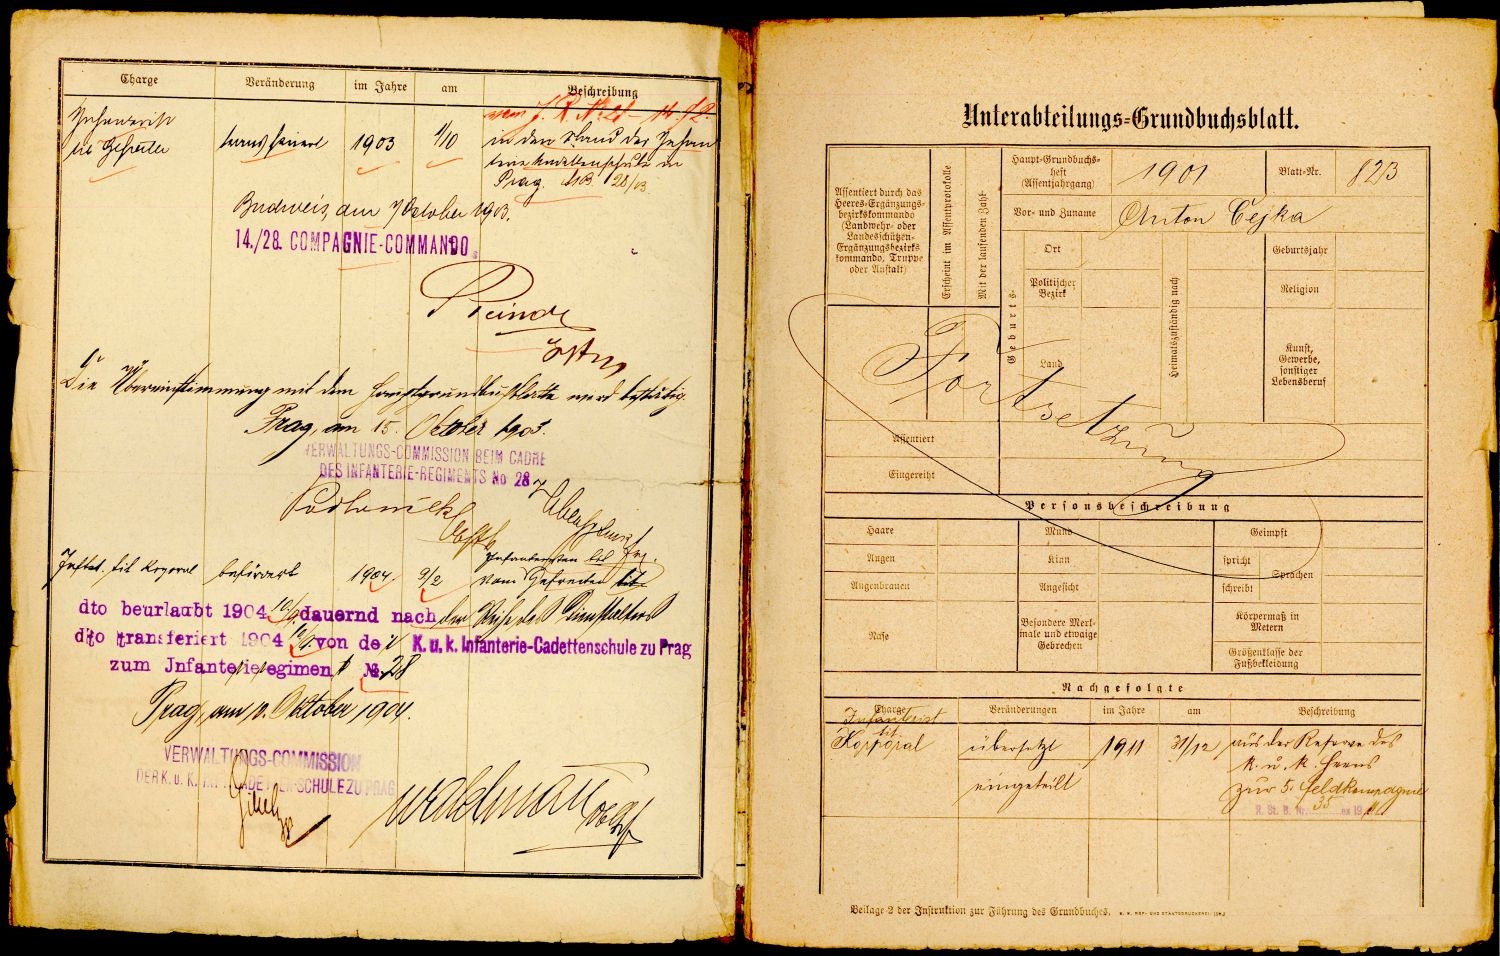 Charge Veränderung im Jahre am Beschreibung
Infanterist
tit. Gefreiter transferiert 1903 1/10 in den Stand der Infan
terie Kadettenschule in
Prag. 28/03.
Budweis, am 7 Oktober 1903.
14./28. COMPAGNIE-COMMANDO.
Die Übereinstimmung mit dem Hauptgrundbuchblatte wird bestätigt.
Prag, am 15. October 1903.
VERWALTUNGS-COMMISSION BEIM CADRE
DES INFANTERIE-REGIMENTS No 28
Infanteristen tit
tit Korporal befördert 1904. 9/2 vom Gefreiten
dto beurlaubt 1904 dauernd nach der Reihe des Dienstalters
dto transferiert 1904 von der K. u. k. Infanterie-Cadettenschule zu Prag
zum Infanterieregiment № 28
Prag, am Oktober 1904.
VERWALTUNGS-COMMISSION
DER K. u. K. INF. CADETTEN-SCHULE ZU PRAG
Unterabteilungs-Grundbuchsblatt.
Assentiert durch das
Heeres-Ergänzungs-
bezirkskommando
(Landwehr- oder
Landesschützen-
Ergänzungsbezirks
kommando, Truppe
oder Anstalt)
Erscheint im Assentprotokolle
Mit der laufenden Zahl
Haupt-Grundbuchs-
heft
(Assentjahrgang)
1901
Blatt-Nr.
82/3
Vor- und Zuname Anton Cejka
Geburts-
Ort
Politischer
Bezirk
Land
Heimatszuständig nach
Geburtsjahr
Religion
Kunst,
Gewerbe,
sonstiger
Lebensberuf
Fortsetzung
Assentiert
Eingereiht
Personsbeschreibung
Haare Mund Geimpft
Augen Kinn spricht
Sprachen
Augenbrauen Angesicht schreibt
Nase
Besondere Merk-
male und etwaige
Gebrechen
Körpermaß in
Metern
Größenklasse der
Fußbekleidung
Nachgefolgte
Charge Veränderungen im Jahre am Beschreibung
Infanterist
tit.
Korporal übersetzt 1911 31/12 aus der Reserve des
k. u. k. Heeres
eingeteilt zur 5. Feldkompagnie
R. St. B. Nr. 35 ex 19
Beilage 2 der Instruktion zur Führung des Grundbuches. K. K. HOF- UND STAATSDRUCKEREI.